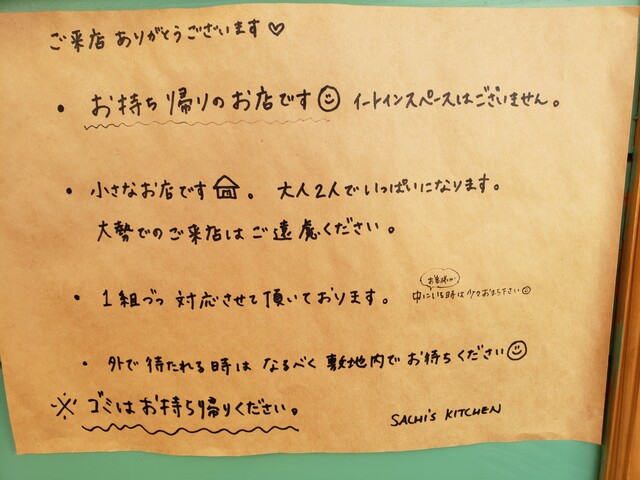 ご来店 ありがとうございます♡
・ お持ち帰りのお店です☺ イートインスペースはございません。
・ 小さなお店です🏠。 大人2人でいっぱいになります。
大勢でのご来店はご遠慮ください。
・ 1組づつ 対応させて頂いております。
お客様が
中にいる時は少々お待ち下さい☺
・ 外で待たれる時は なるべく敷地内でお待ちください☺
※ ゴミはお持ち帰りください。
SACHI'S KITCHEN